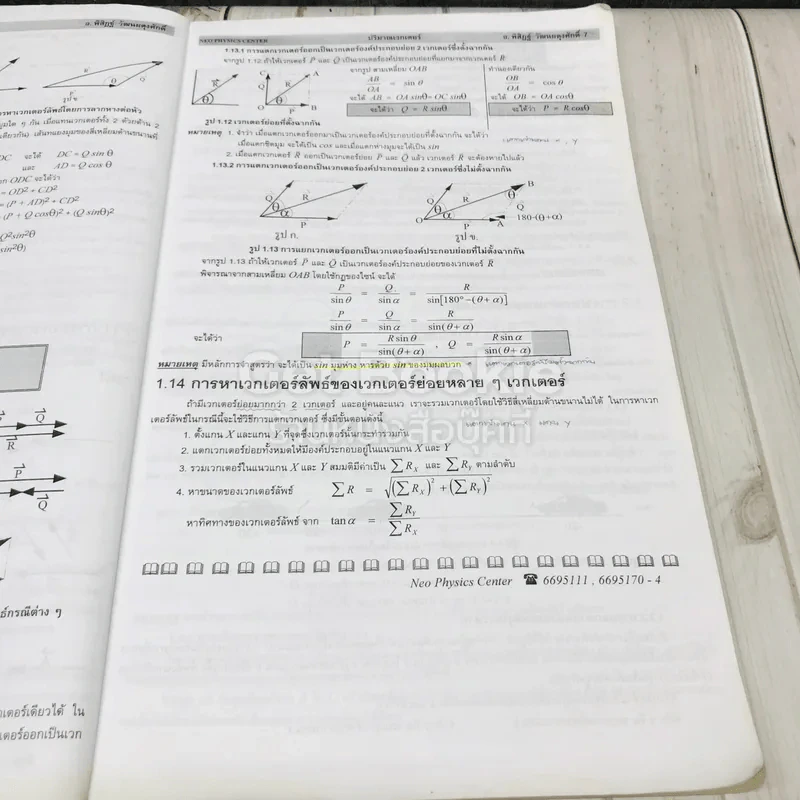 อ. พิสิฏฐ์ วัฒนผดุงศักดิ์
รูป ข.
DC จะได้ DC = Q sin θ
และ AD = Q cos θ
ก ODC จะได้ว่า
= OD² + CD²
= (P + AD)² + CD²
= (P + Q cosθ)² + (Q sinθ)²
Q² sin²θ
sin²θ)
Q
R
P
Q
ธ์กรณีต่าง ๆ
กเตอร์เดียวได้ ใน
เตอร์ออกเป็นเวก
NEO PHYSICS CENTER ปริมาณเวกเตอร์ อ. พิสิฏฐ์ วัฒนผดุงศักดิ์ 7
1.13.1 การแตกเวกเตอร์ออกเป็นเวกเตอร์องค์ประกอบย่อย 2 เวกเตอร์ซึ่งตั้งฉากกัน
จากรูป 1.12 ถ้าให้เวกเตอร์ P และ Q เป็นเวกเตอร์องค์ประกอบย่อยที่แยกมาจากเวกเตอร์ R
จากรูป สามเหลี่ยม OAB ทำนองเดียวกัน
AB/OA = sin θ OB/OA = cos θ
จะได้ AB = OA sinθ = OC sinθ จะได้ OB = OA cosθ
จะได้ว่า Q = R sinθ จะได้ว่า P = R cosθ
R θ C A Q R θ O P B
รูป 1.12 เวกเตอร์ย่อยที่ตั้งฉากกัน
หมายเหตุ 1. จำว่า เมื่อแตกเวกเตอร์ออกมาเป็นเวกเตอร์องค์ประกอบย่อยที่ตั้งฉากกัน จะได้ว่า
เมื่อแตกชิดมุม จะได้เป็น cos และเมื่อแตกห่างมุมจะได้เป็น sin
2. เมื่อแตกเวกเตอร์ R ออกเป็นเวกเตอร์ย่อย P และ Q แล้ว เวกเตอร์ R จะต้องหายไปแล้ว
1.13.2 การแตกเวกเตอร์ออกเป็นเวกเตอร์องค์ประกอบย่อย 2 เวกเตอร์ซึ่งไม่ตั้งฉากกัน
Q R θ α P
B Q R θ Q α O P A 180-(θ+α)
รูป ก. รูป ข.
รูป 1.13 การแยกเวกเตอร์ออกเป็นเวกเตอร์องค์ประกอบย่อยที่ไม่ตั้งฉากกัน
จากรูป 1.13 ถ้าให้เวกเตอร์ P และ Q เป็นเวกเตอร์องค์ประกอบย่อยของเวกเตอร์ R
พิจารณาจากสามเหลี่ยม OAB โดยใช้กฎของไซน์ จะได้
P/sin θ = Q/sin α = R/sin[180°−(θ+α)]
P/sin θ = Q/sin α = R/sin(θ+α)
จะได้ว่า P = R sin θ/sin(θ+α) , Q = R sin α/sin(θ+α)
หมายเหตุ มีหลักการจำสูตรว่า จะได้เป็น sin มุมห่าง หารด้วย sin ของมุมผลบวก
1.14 การหาเวกเตอร์ลัพธ์ของเวกเตอร์ย่อยหลาย ๆ เวกเตอร์
ถ้ามีเวกเตอร์ย่อยมากกว่า 2 เวกเตอร์ และอยู่คนละแนว เราจะรวมเวกเตอร์โดยใช้วิธีสี่เหลี่ยมด้านขนานไม่ได้ ในการหาเวก
เตอร์ลัพธ์ในกรณีนี้จะใช้วิธีการแตกเวกเตอร์ ซึ่งมีขั้นตอนดังนี้
1. ตั้งแกน X และแกน Y ที่จุดซึ่งเวกเตอร์นั้นกระทำร่วมกัน
2. แตกเวกเตอร์ย่อยทั้งหมดให้มีองค์ประกอบอยู่ในแนวแกน X และ Y
3. รวมเวกเตอร์ในแนวแกน X และ Y สมมติมีค่าเป็น ∑R_X และ ∑R_Y ตามลำดับ
4. หาขนาดของเวกเตอร์ลัพธ์ ∑R = √((∑R_X)² + (∑R_Y)²)
หาทิศทางของเวกเตอร์ลัพธ์ จาก tan α = ∑R_Y/∑R_X
Neo Physics Center ☎ 6695111 , 6695170 - 4